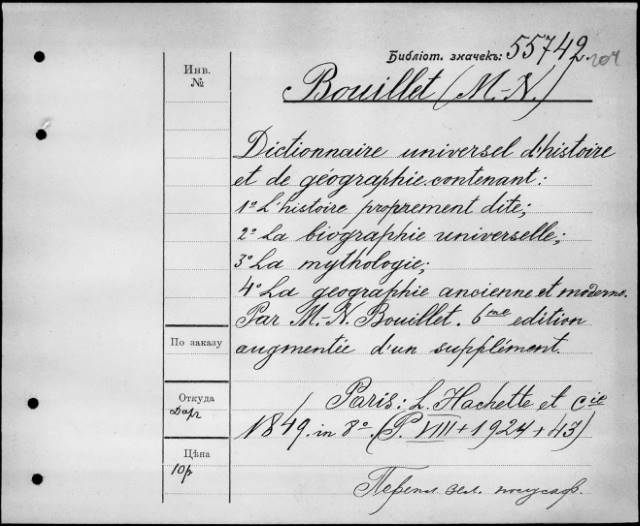 Библіот. значекъ: 55742
204
Инв.
№
Bouillet (M.-N.)
Dictionnaire universel d'histoire
et de géographie contenant:
1º L'histoire proprement dite;
2º La biographie universelle;
3º La mythologie;
4º La géographie ancienne et moderne.
Par M.-N. Bouillet. 6me edition
augmentée d'un supplément.
По заказу
Paris: L. Hachette et Cie
Откуда
Дар
1849. in 8º. (P. VIII + 1924 + 43)
Цѣна
10р
Перепл. зел. полусаф.